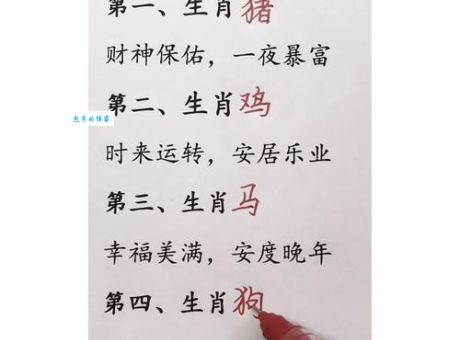 第一、生肖猪
财神保佑，一夜暴富
第二、生肖鸡
包子的博客
时来运转，安居乐业
第三、生肖马
幸福美满，安度晚年
第四、生肖狗